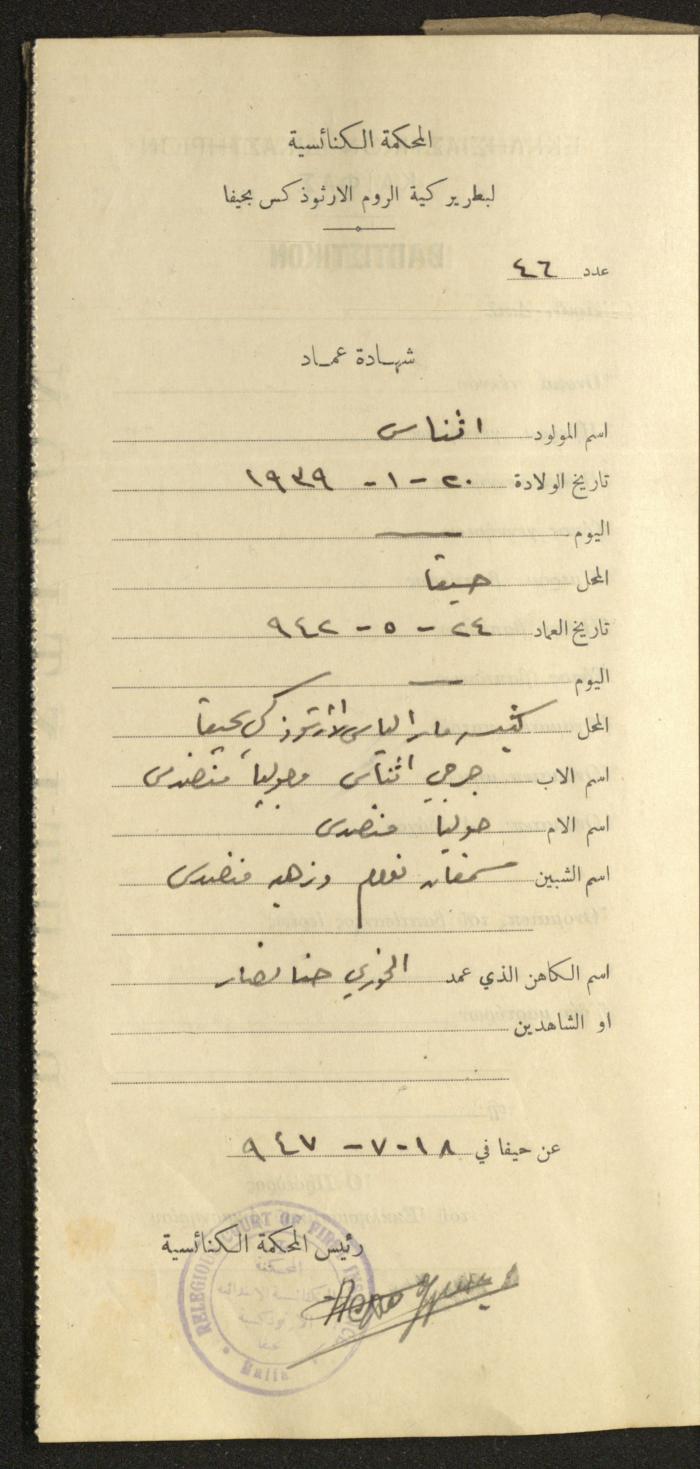 المحكمة الكنائسية
لبطريركية الروم الارثوذكس بحيفا
عدد ٤٦
شهادة عماد
اسم المولود اثناس
تاريخ الولادة ٢٠ - ١ - ١٩٣٩
اليوم —
المحل حيفا
تاريخ العماد ٢٤ - ٥ - ٩٤٢
اليوم —
المحل كنيسة مار الياس للارثوذكس بحيفا
اسم الاب جرجي اثناس
اسم الام جوليا
اسم الشبين سمعان وزهيه
اسم الكاهن الذي عمد الخوري حنا
او الشاهدين
عن حيفا في ١٨-٧-٩٤٧
رئيس المحكمة الكنائسية
RELEGIOUS COURT OF FIRST INSTANCE
المحكمة
الكنائسية الابتدائية
الارثوذكسية
حيفا
Haifa